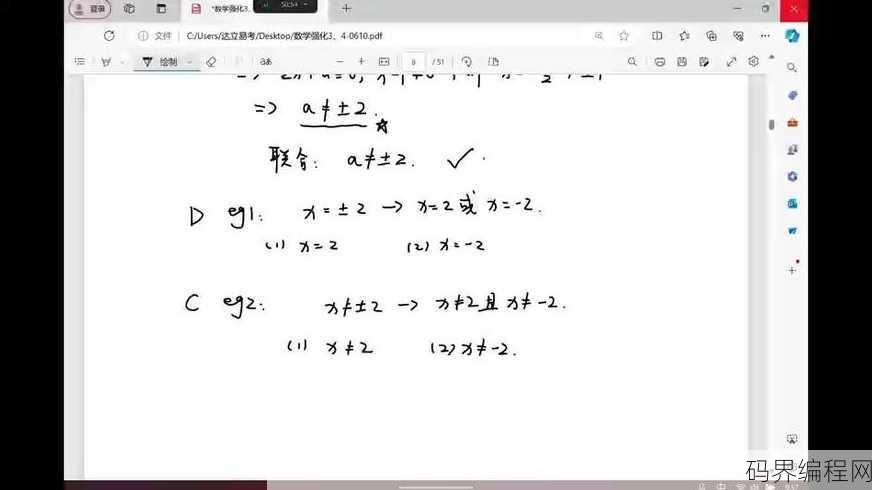 登录
*数学强化3、
50:54
文件 C:/Users/达立易考/Desktop/数学强化3、4-0610.pdf
绘制 aあ 8 /51
=> a≠±2. ☆
联合: a≠±2. ✓.
D eg1: x=±2 → x=2或 x=-2.
(1) x=2 (2) x=-2
C eg2: x≠±2 → x≠2且 x≠-2.
(1) x≠2 (2) x≠-2.
码界编程网
中 9:57